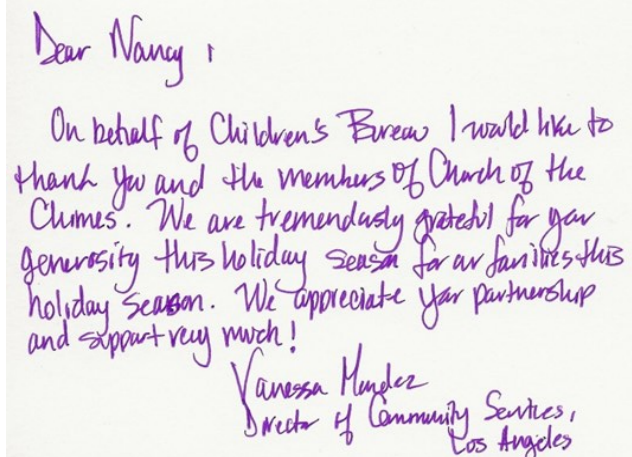 Dear Nancy,
On behalf of Children's Bureau I would like to
thank you and the members of Church of the
Chimes. We are tremendously grateful for your
generosity this holiday season for our families this
holiday season. We appreciate your partnership
and support very much!
Vanessa Mendez
Director of Community Services,
Los Angeles